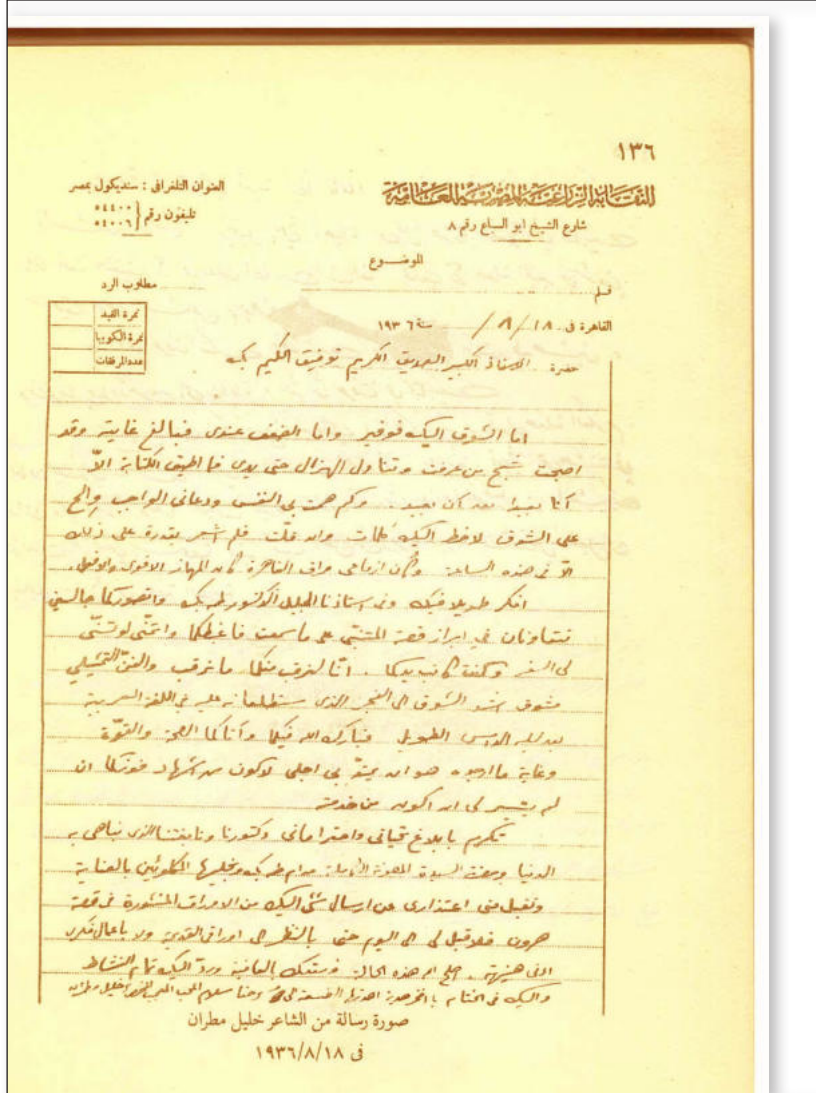 ١٣٦
النقابة الزراعية المصرية العامة
العنوان التلغرافى : سنديكول بمصر
شارع الشيخ ابو السباع رقم ٨
تليفون رقم { ٥٤٤٠٠ ٥٤٠٠٦
الموضوع
قلم
مطلوب الرد
القاهرة فى ١٨ / ٨ / سنة ١٩٣٦
نمرة القيد
نمرة الكوبيا
عدد المرفقات
حضرة الاستاذ الكبير الصديق الكريم توفيق الحكيم بك
اما الشوق اليك فوفير واما الضعف عندى فبالغ غايته وقد
اصبحت شبح من عرفت وتناول الهزال حتى يدى فما اطيق الكتابة الاّ
آنا بعيدا بعد آن بعيد . وكم همت بى النفس ودعانى الواجب والح
على الشوق لاخط اليك كلمات وان قلّت فلم اشعر بقدرة على ذلك
الاّ فى هذه الساعة وكأن ازماعى فراق القاهرة كان المهماز الاقوى والافعل .
افكر طويلا فيك وفى استاذنا الجليل الدكتور طه بك واتصوركما جالسين
تتعاونان فى ابراز قصة على ما سمعت فاغبطكما واتمنّى لو تسنّى
لى السفر وكنت كاتب يديكما . انّا لنرقب منكما ما نرقب والفنّ التمثيلى
مشوق اشد الشوق الى الفجر الذى ستطلعانه عليه فى اللغة العربية
بعد ليله الدامس الطويل فبارك الله فيكما وآتاكما الصحة والقوّة
وغاية ما ارجوه هو ان يمتدّ بى اجلى لاكون من اشهاد فوزكما ان
لم يتيسر لى ان اكون من خدمته
تكرم بابلاغ تحياتى واحتراماتى دكتورنا ونابغتنا الذى نباهى به
الدنيا السيدة المصونة مدام طه بك ونجليها المكلوئين بالعناية
وتقبل منى اعتذارى عن ارسال شئ اليك من الاوراق المنشورة فى قصة
هرون فلا قبل لى الى اليوم حتى بالنظر الى اوراقى القديمة ولا باعمال فكرى
ادنى هنيهة . اصلح الله هذه الحال ومتعك بالعافية وردّ اليك تمام النشاط
واليك فى الختام سلام المحب المعجب المخلص خليل مطران
صورة رسالة من الشاعر خليل مطران
فى ١٩٣٦/٨/١٨